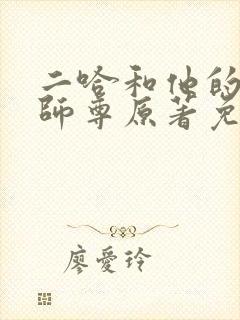 二哈和他的
師尊原著免
廖愛玲